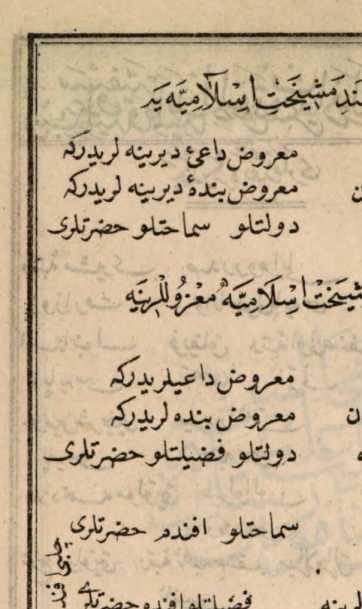 مسند مشیخت اسلامیه یه
معروض داعئ دیرینه لریدرکه
معروض بندهٔ دیرینه لریدرکه
دولتلو سماحتلو حضرتلری
مشیخت اسلامیه معزوللرینه
معروض داعیلریدرکه
معروض بنده لریدرکه
دولتلو فضیلتلو حضرتلری
سماحتلو افندم حضرتلری
فضیلتلو افندم حضرتلری